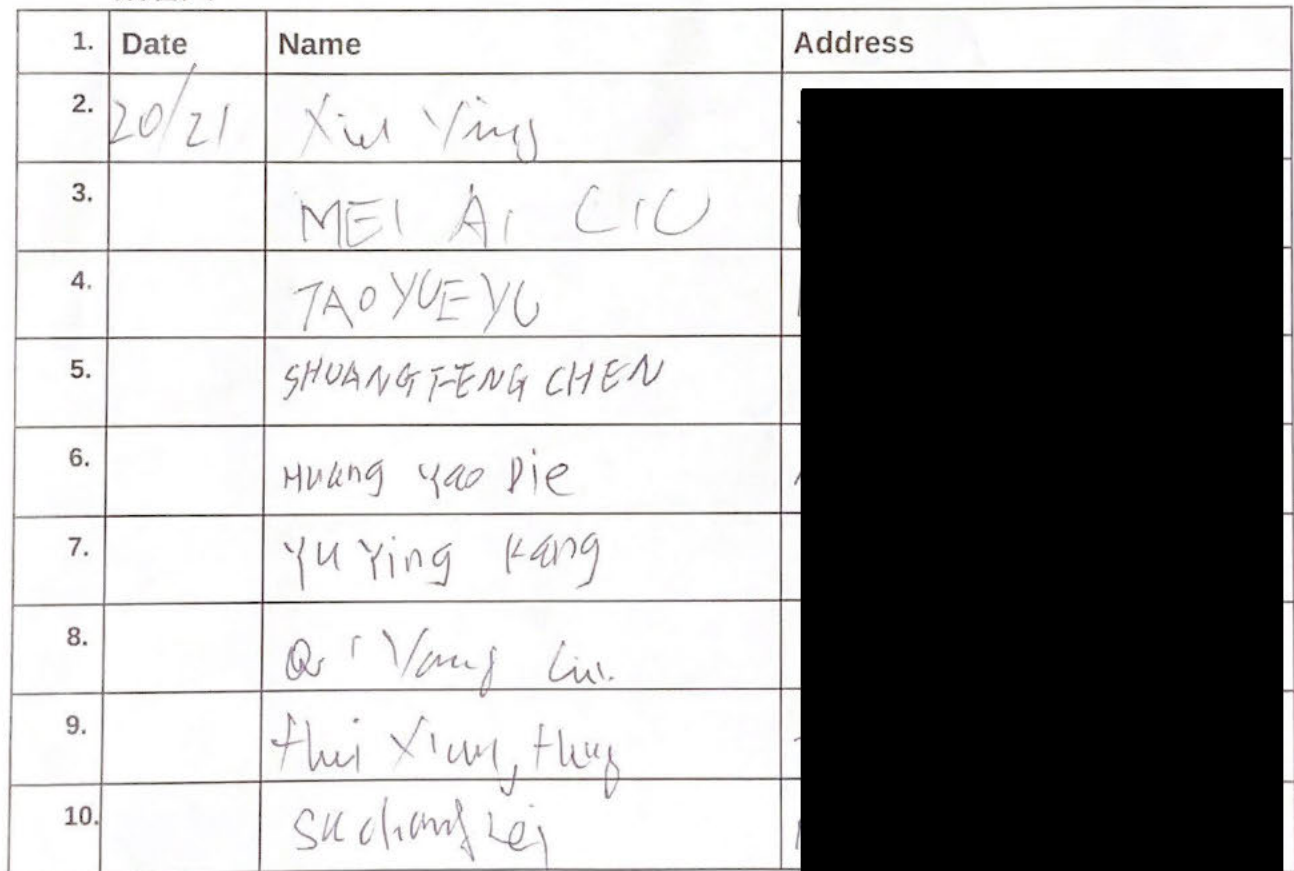 1. Date Name Address
2. 20/21 Xiu Ying
3. MEI AI LIU
4. TAO YUE YU
5. SHUANG FENG CHEN
6. Huang Yao Die
7. Yu Ying Kang
8. Qi Yang Liu.
9.
10. Su chang Lei